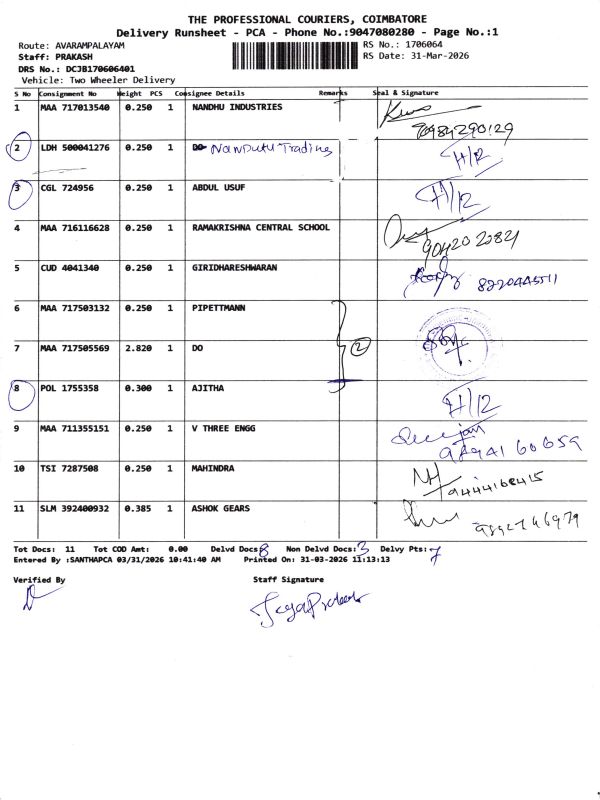 THE PROFESSIONAL COURIERS, COIMBATORE
Delivery Runsheet - PCA - Phone No.:9047080280 - Page No.:1
Route: AVARAMPALAYAM RS No.: 1706064
Staff: PRAKASH RS Date: 31-Mar-2026
DRS No.: DCJB170606401
Vehicle: Two Wheeler Delivery
S No Consignment No Weight PCS Consignee Details Remarks Seal & Signature
1 MAA 717013540 0.250 1 NANDHU INDUSTRIES
2 LDH 500041276 0.250 1 Nandhu Trading H/12
3 CGL 724956 0.250 1 ABDUL USUF H/12
4 MAA 716116628 0.250 1 RAMAKRISHNA CENTRAL SCHOOL
5 CUD 4041340 0.250 1 GIRIDHARESHWARAN
6 MAA 717503132 0.250 1 PIPETTMANN
7 MAA 717505569 2.820 1 DO 2
8 POL 1755358 0.300 1 AJITHA H/12
9 MAA 711355151 0.250 1 V THREE ENGG
10 TSI 7287508 0.250 1 MAHINDRA 9444168415
11 SLM 392400932 0.385 1 ASHOK GEARS
Tot Docs: 11 Tot COD Amt: 0.00 Delvd Docs: 8 Non Delvd Docs: 3 Delvy Pts: 7
Entered By :SANTHAPCA 03/31/2026 10:41:40 AM Printed On: 31-03-2026 11:13:13
Verified By Staff Signature